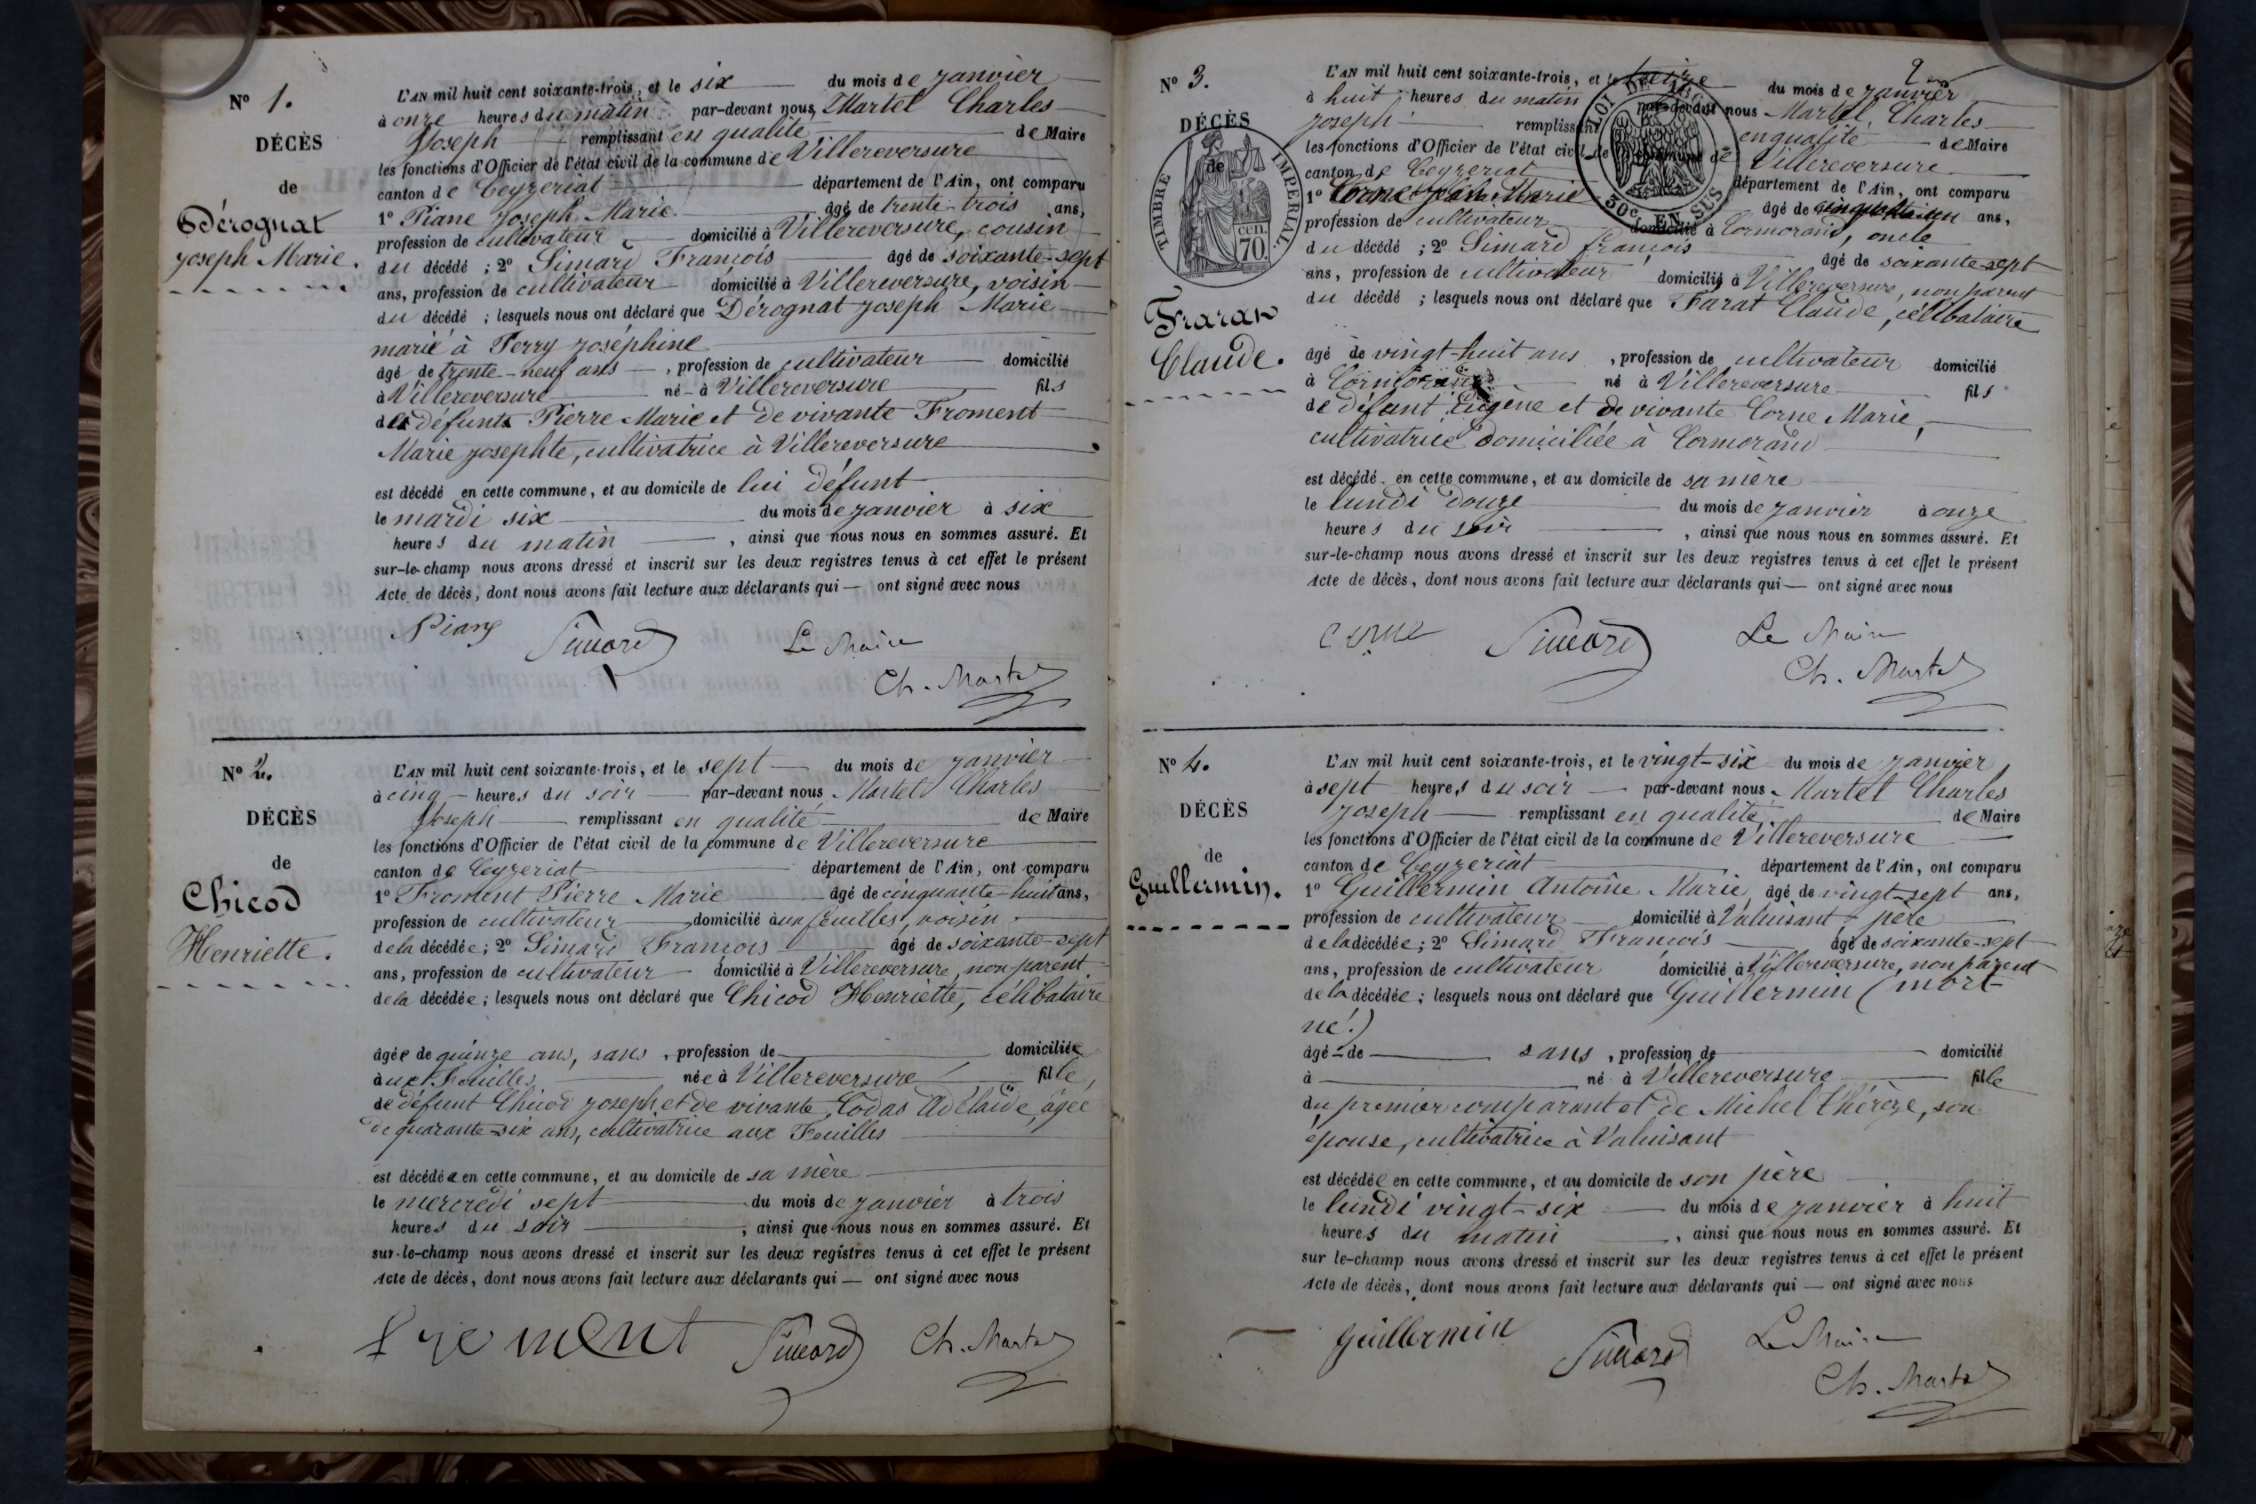 N° 1.
DÉCÈS
de
Dérognat
Joseph Marie.
L'AN mil huit cent soixante-trois, et le six du mois de janvier
à onze heures du matin par-devant nous, Martel Charles
Joseph remplissant en qualité de Maire
les fonctions d'Officier de l'état civil de la commune de Villereversure
canton de Ceyzeriat département de l'Ain, ont comparu
1° Piane Joseph Marie âgé de trente-trois ans,
profession de cultivateur domicilié à Villereversure, cousin
du décédé ; 2° Simard François âgé de soixante-sept
ans, profession de cultivateur domicilié à Villereversure, voisin
du décédé ; lesquels nous ont déclaré que Dérognat Joseph Marie
marié à Perry Joséphine
âgé de trente-neuf ans, profession de cultivateur domicilié
à Villereversure né à Villereversure fils
des défunts Pierre Marie et de vivante Froment
Marie Josephte, cultivatrice à Villereversure
est décédé en cette commune, et au domicile de lui défunt
le mardi six du mois de janvier à six
heures du matin, ainsi que nous nous en sommes assuré. Et
sur-le-champ nous avons dressé et inscrit sur les deux registres tenus à cet effet le présent
Acte de décès, dont nous avons fait lecture aux déclarants qui — ont signé avec nous
Piane Simard Le Maire
Ch. Martel
N° 2.
DÉCÈS
de
Chicod
Henriette.
L'AN mil huit cent soixante-trois, et le sept du mois de janvier
à cinq heures du soir par-devant nous Martel Charles
Joseph remplissant en qualité de Maire
les fonctions d'Officier de l'état civil de la commune de Villereversure
canton de Ceyzeriat département de l'Ain, ont comparu
1° Froment Pierre Marie âgé de cinquante-huit ans,
profession de cultivateur domicilié aux feuilles, voisin
de la décédée ; 2° Simard François âgé de soixante-sept
ans, profession de cultivateur domicilié à Villereversure, non parent
de la décédée ; lesquels nous ont déclaré que Chicod Henriette, célibataire
âgée de quinze ans, sans, profession de domiciliée
aux Feuilles née à Villereversure fille,
de défunt Chicod Joseph et de vivante Codas Adélaïde, âgée
de quarante-six ans, cultivatrice aux Feuilles
est décédée en cette commune, et au domicile de sa mère
le mercredi sept du mois de janvier à trois
heures du soir, ainsi que nous nous en sommes assuré. Et
sur-le-champ nous avons dressé et inscrit sur les deux registres tenus à cet effet le présent
Acte de décès, dont nous avons fait lecture aux déclarants qui — ont signé avec nous
froment Simard Ch. Martel
2
N° 3.
DÉCÈS
de
TIMBRE IMPERIAL.
cen.
70.
Claude.
L'AN mil huit cent soixante-trois, et le treize du mois de janvier
à huit heures du matin par-devant nous Martel Charles
Joseph remplissant en qualité de Maire
les fonctions d'Officier de l'état civil de la commune de Villereversure
canton de Ceyzeriat département de l'Ain, ont comparu
LOI DE 50c. EN SUS
1° Corne Jean Marie âgé de ans,
profession de cultivateur domicilié à Cormorand, oncle
du décédé ; 2° Simard françois âgé de soixante-sept
ans, profession de cultivateur domicilié à Villereversure, non parent
du décédé ; lesquels nous ont déclaré que Farat Claude, célibataire
âgé de vingt-huit ans, profession de cultivateur domicilié
à Cormorand né à Villereversure fils
de défunt Eugène et de vivante Corne Marie,
cultivatrice domiciliée à Cormorand
est décédé en cette commune, et au domicile de sa mère
le lundi douze du mois de janvier à onze
heures du soir, ainsi que nous nous en sommes assuré. Et
sur-le-champ nous avons dressé et inscrit sur les deux registres tenus à cet effet le présent
Acte de décès, dont nous avons fait lecture aux déclarants qui — ont signé avec nous
Corne Simard Le Maire
Ch. Martel
N° 4.
DÉCÈS
de
Guillermin.
L'AN mil huit cent soixante-trois, et le vingt-six du mois de janvier,
à sept heures du soir par-devant nous Martel Charles
Joseph remplissant en qualité de Maire
les fonctions d'Officier de l'état civil de la commune de Villereversure
canton de Ceyzeriat département de l'Ain, ont comparu
1° Guillermin Antoine Marie, âgé de vingt-sept ans,
profession de cultivateur domicilié à Valuisant, père
de la décédée ; 2° Simard François âgé de soixante-sept
ans, profession de cultivateur domicilié à Villereversure, non parent
de la décédée ; lesquels nous ont déclaré que Guillermin (mort-
né.)
âgé de sans, profession de domicilié
à né à Villereversure fille
du premier comparant et de Michel Thérèze, son
épouse, cultivatrice à Valuisant
est décédée en cette commune, et au domicile de son père
le lundi vingt-six du mois de janvier à huit
heures du matin, ainsi que nous nous en sommes assuré. Et
sur le-champ nous avons dressé et inscrit sur les deux registres tenus à cet effet le présent
Acte de décès, dont nous avons fait lecture aux déclarants qui — ont signé avec nous
Guillermin Simard Le Maire
Ch. Martel